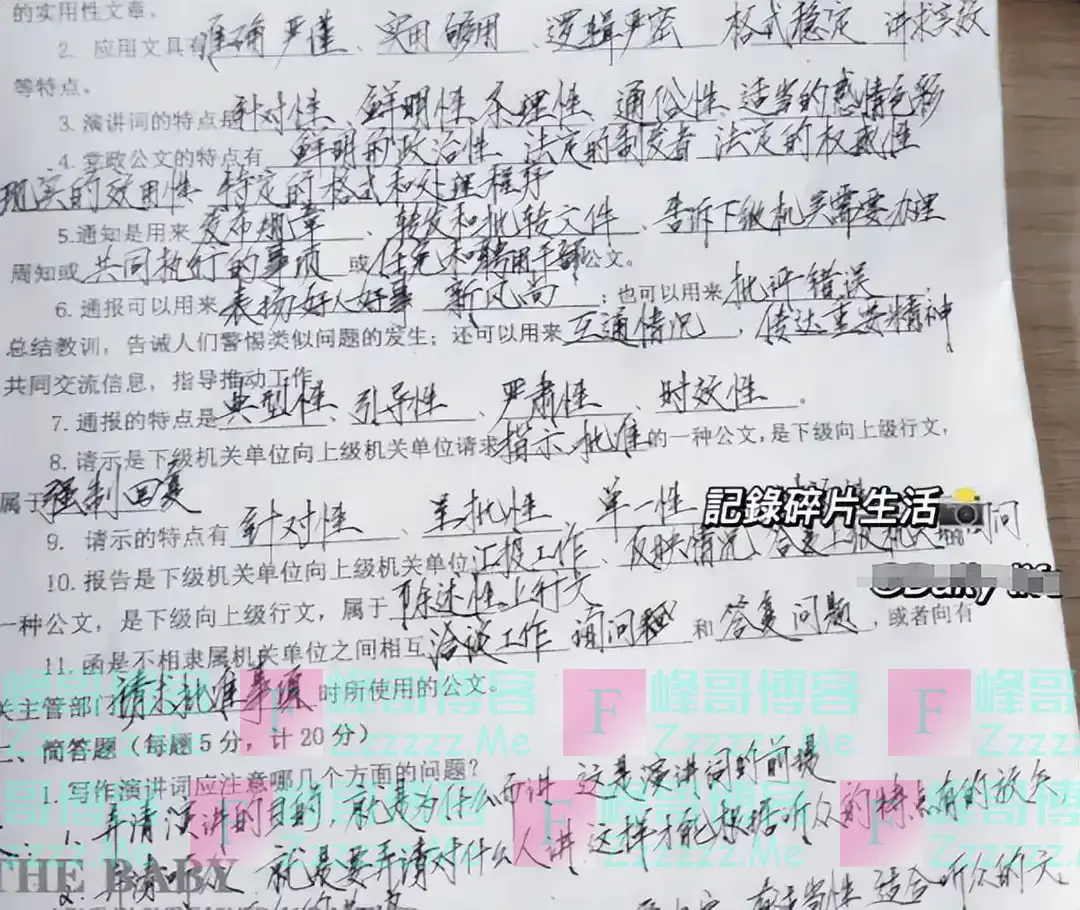 的实用性文章。
2. 应用文具有准确严谨、实用够用、逻辑严密 格式稳定 讲求实效
等特点。
3. 演讲词的特点是针对性、鲜明性、条理性、通俗性、适当的感情色彩
4. 党政公文的特点有 鲜明的政治性、法定的制发者 法定的权威性
现实的效用性 特定的格式和处理程序
5.通知是用来 发布规章、转发和批转文件、告诉下级机关需要办理
周知或 共同执行的事项 或 任免和聘用干部公文。
6. 通报可以用来表扬好人好事 新风尚 ；也可以用来 批评错误，
总结教训，告诫人们警惕类似问题的发生；还可以用来 互通情况，传达重要精神
共同交流信息，指导推动工作
7. 通报的特点是典型性、引导性、严肃性、时效性。
8. 请示是下级机关单位向上级机关单位请求指示、批准的一种公文,是下级向上级行文，
属于强制回复
9. 请示的特点有 针对性、呈批性、单一性
記錄碎片生活
10. 报告是下级机关单位向上级机关单位汇报工作、反映情况、答复上级机关 询问
@Daily life
一种公文，是下级向上级行文，属于 陈述性上行文
11. 函是不相隶属机关单位之间相互洽谈工作 询问 和 答复问题，或者向有
关主管部门请求批准事项 时所使用的公文。
峰哥博客 F 峰哥博客 F 峰哥博客 F 峰哥博客
Zzzzzz.Me Zzzzzz.Me Zzzzzz.Me
二、简答题（每题5分，计20分）
1. 写作演讲词应注意哪几个方面的问题？
1. 弄清演讲的目的，就是为什么而讲 这是演讲词的前提
2. 弄清听众 就是要弄清对什么人讲 这样才能根据听众的特点有的放矢
THE BABY
适合听众的